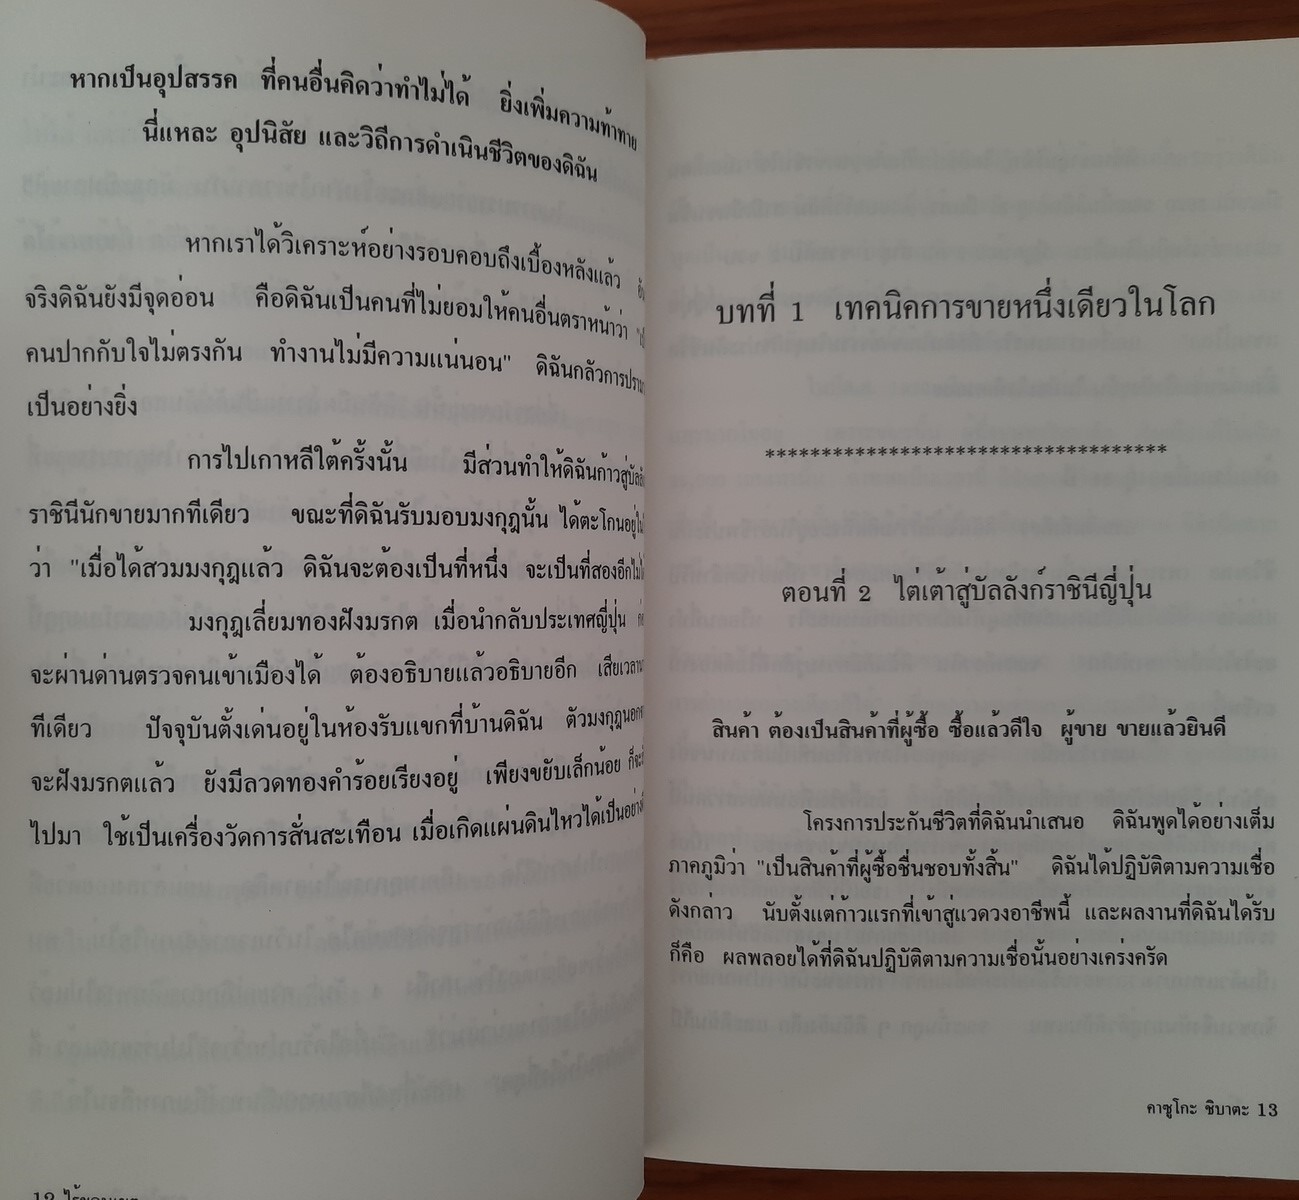 หากเป็นอุปสรรค ที่คนอื่นคิดว่าทำไม่ได้ ยิ่งเพิ่มความท้าทาย
นี่แหละ อุปนิสัย และวิถีการดำเนินชีวิตของดิฉัน
หากเราได้วิเคราะห์อย่างรอบคอบถึงเบื้องหลังแล้ว
จริงดิฉันยังมีจุดอ่อน คือดิฉันเป็นคนที่ไม่ยอมให้คนอื่นตราหน้าว่า
คนปากกับใจไม่ตรงกัน ทำงานไม่มีความแน่นอน" ดิฉันกลัวการ
เป็นอย่างยิ่ง
การไปเกาหลีใต้ครั้งนั้น มีส่วนทำให้ดิฉันก้าวสู่
ราชินีนักขายมากทีเดียว ขณะที่ดิฉันรับมอบมงกุฎนั้น ได้ตะโกนอยู่
ว่า "เมื่อได้สวมมงกุฎแล้ว ดิฉันจะต้องเป็นที่หนึ่ง จะเป็นที่สองอีก
มงกุฎเลี่ยมทองฝังมรกต เมื่อนำกลับประเทศญี่ปุ่น
จะผ่านด่านตรวจคนเข้าเมืองได้ ต้องอธิบายแล้วอธิบายอีก
ทีเดียว ปัจจุบันตั้งเด่นอยู่ในห้องรับแขกที่บ้านดิฉัน ตัวมงกุฎ
จะฝังมรกตแล้ว ยังมีลวดทองคำร้อยเรียงอยู่ เพียงขยับเล็กน้อย
ไปมา ใช้เป็นเครื่องวัดการสั่นสะเทือน เมื่อเกิดแผ่นดินไหวได้เป็นอย่าง
บทที่ 1 เทคนิคการขายหนึ่งเดียวในโลก
************************************
ตอนที่ 2 ไต่เต้าสู่บัลลังก์ราชินีญี่ปุ่น
สินค้า ต้องเป็นสินค้าที่ผู้ซื้อ ซื้อแล้วดีใจ ผู้ขาย ขายแล้วยินดี
โครงการประกันชีวิตที่ดิฉันนำเสนอ ดิฉันพูดได้อย่างเต็ม
ภาคภูมิว่า "เป็นสินค้าที่ผู้ซื้อชื่นชอบทั้งสิ้น" ดิฉันได้ปฏิบัติตามความเชื่อ
ดังกล่าว นับตั้งแต่ก้าวแรกที่เข้าสู่แวดวงอาชีพนี้ และผลงานที่ดิฉันได้รับ
ก็คือ ผลพลอยได้ที่ดิฉันปฏิบัติตามความเชื่อนั้นอย่างเคร่งครัด
คาซูโกะ ชิบาตะ 13